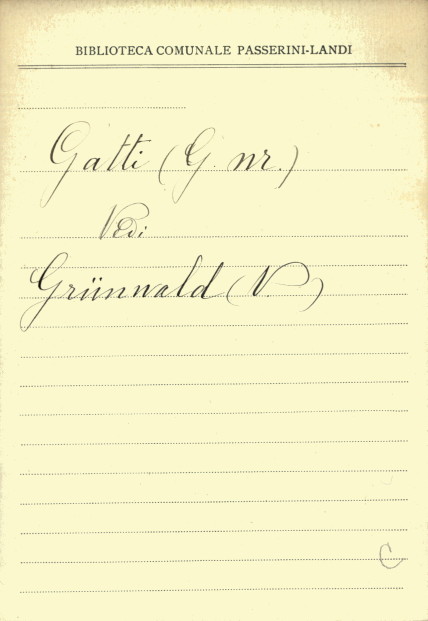 BIBLIOTECA COMUNALE PASSERINI-LANDI
Gatti (G. nr.)
Vedi
Grünwald (V.)
C